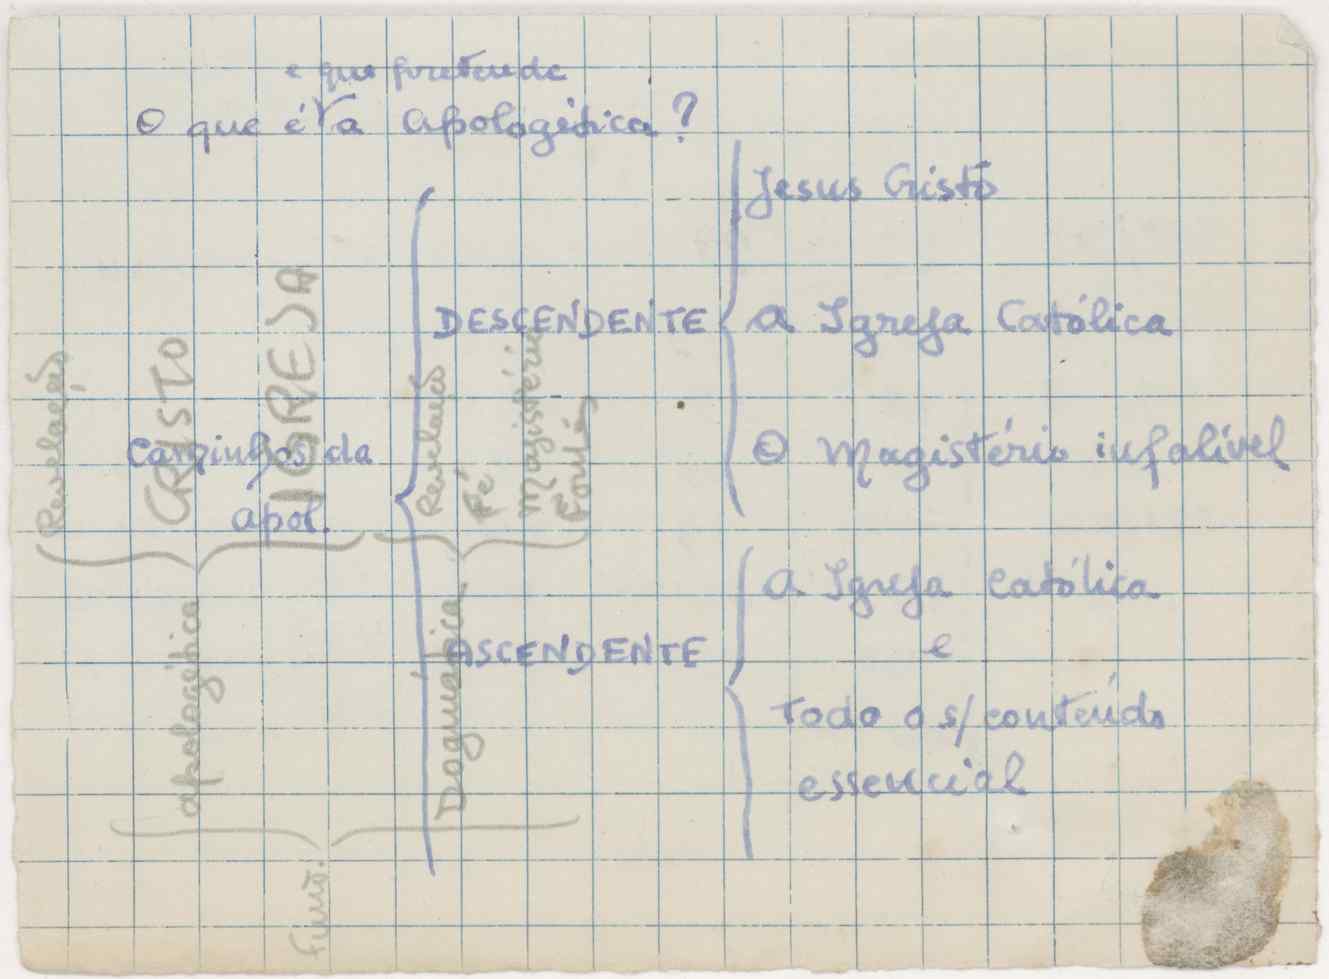 e que pretende
O que é a Apologética?
Caminhos da
apol.
DESCENDENTE
Jesus Cristo
A Igreja Católica
O Magistério infalível
ASCENDENTE
A Igreja Católica
e
todo o s/ conteúdo
essencial
Apologética
Revelação
CRISTO
IGREJA
Dogmática
Revelação
Fé
Magistério